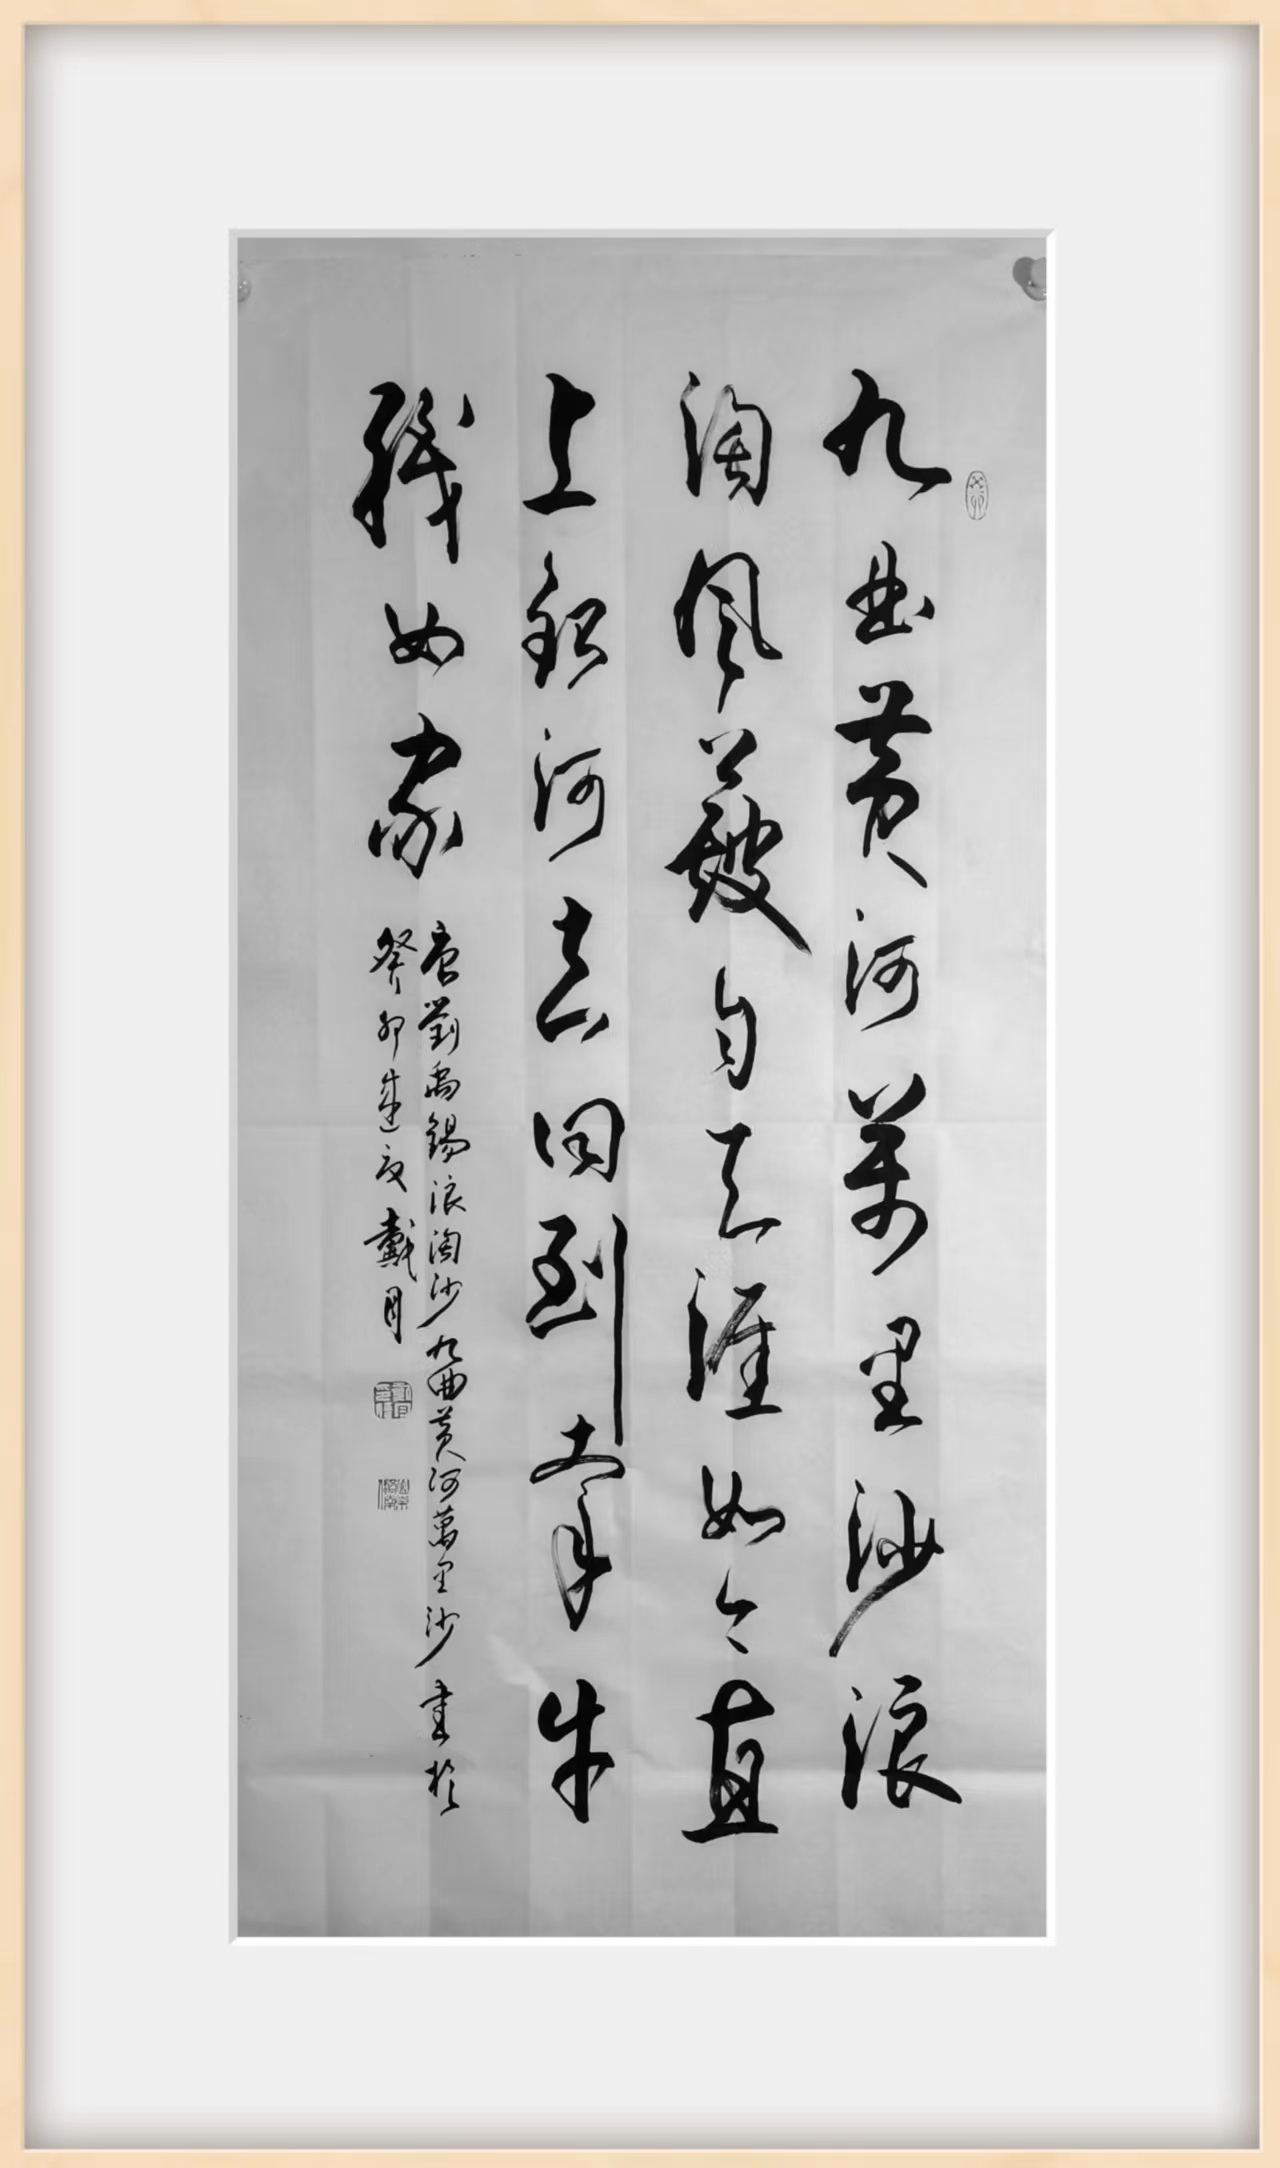 九曲黄河萬里沙浪
淘風簸自天涯如今直
上銀河去同到牽牛
織女家
唐劉禹錫浪淘沙九曲黄河萬里沙書於
癸卯夏戴月